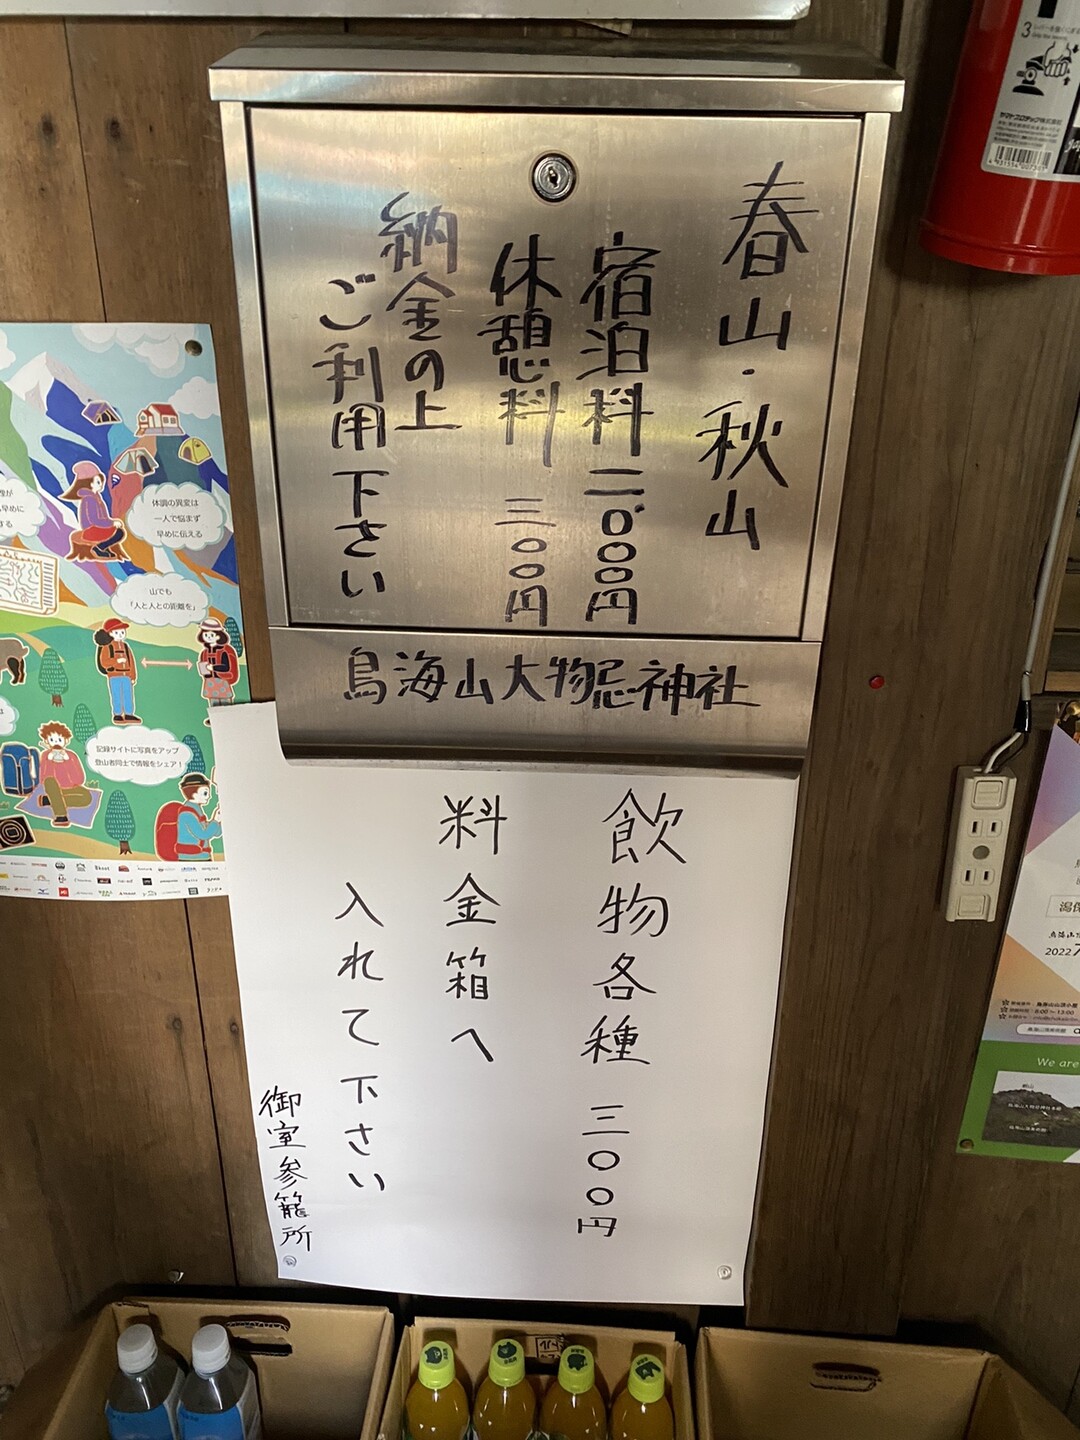 春山・秋山
宿泊料 二、〇〇〇円
休憩料 三〇〇円
納金の上
ご利用下さい
鳥海山大物忌神社
飲物各種 三〇〇円
料金箱へ
入れて下さい
御室参籠所
体調の異変は
一人で悩まず
早めに伝える
山でも
「人と人との距離を」
記録サイトに写真をアップ
登山者同士で情報をシェア！
2022
We are